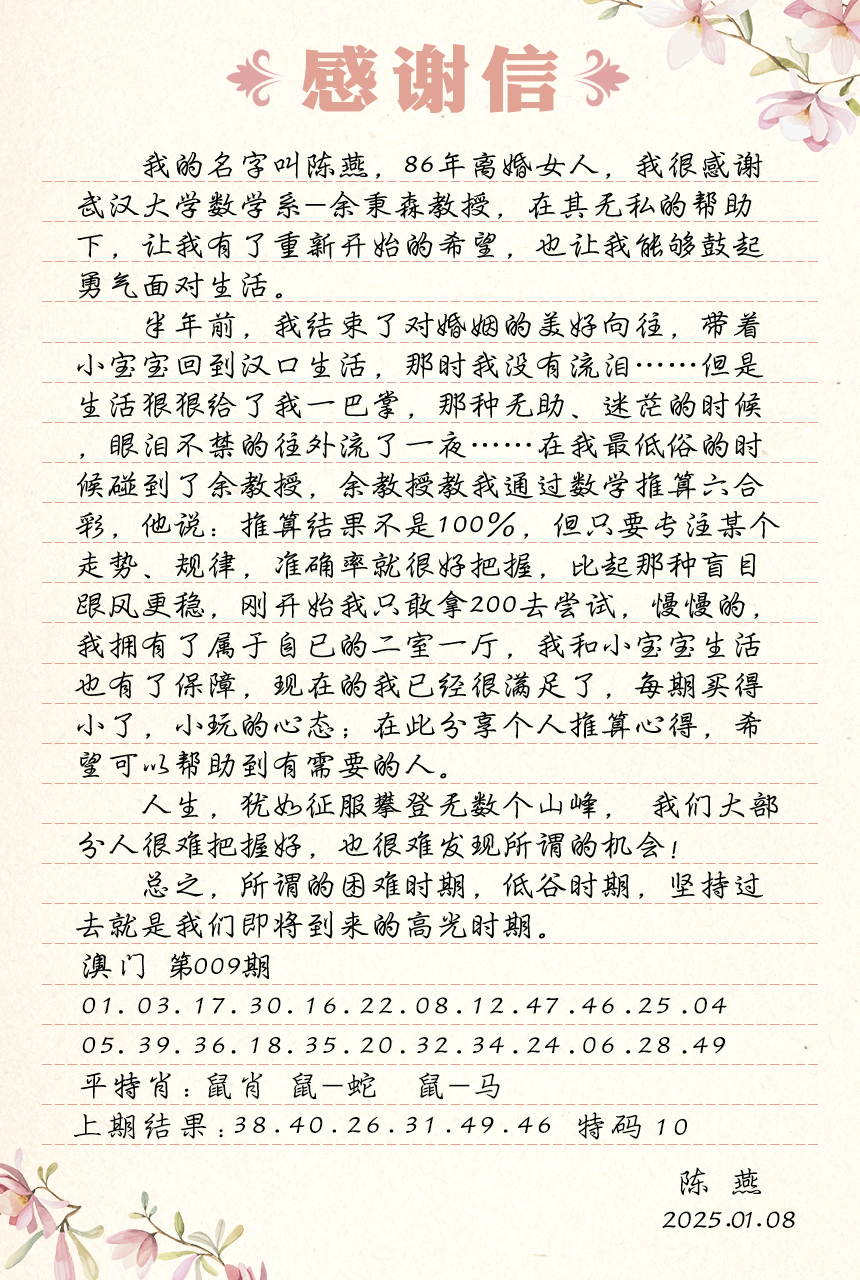 感谢信
我的名字叫陈燕，86年离婚女人，我很感谢
武汉大学数学系—余秉森教授，在其无私的帮助
下，让我有了重新开始的希望，也让我能够鼓起
勇气面对生活。
半年前，我结束了对婚姻的美好向往，带着
小宝宝回到汉口生活，那时我没有流泪……但是
生活狠狠给了我一巴掌，那种无助、迷茫的时候
，眼泪不禁的往外流了一夜……在我最低俗的时
候碰到了余教授，余教授教我通过数学推算六合
彩，他说：推算结果不是100%，但只要专注某个
走势、规律，准确率就很好把握，比起那种盲目
跟风更稳，刚开始我只敢拿200去尝试，慢慢的，
我拥有了属于自已的二室一厅，我和小宝宝生活
也有了保障，现在的我已经很满足了，每期买得
小了，小玩的心态；在此分享个人推算心得，希
望可以帮助到有需要的人。
人生，犹如征服攀登无数个山峰， 我们大部
分人很难把握好，也很难发现所谓的机会！
总之，所谓的困难时期，低谷时期，坚持过
去就是我们即将到来的高光时期。
澳门 第009期
01.03.17.30.16.22.08.12.47.46.25.04
05.39.36.18.35.20.32.34.24.06.28.49
平特肖：鼠肖 鼠—蛇 鼠—马
上期结果：38.40.26.31.49.46 特码 10
陈 燕
2025.01.08